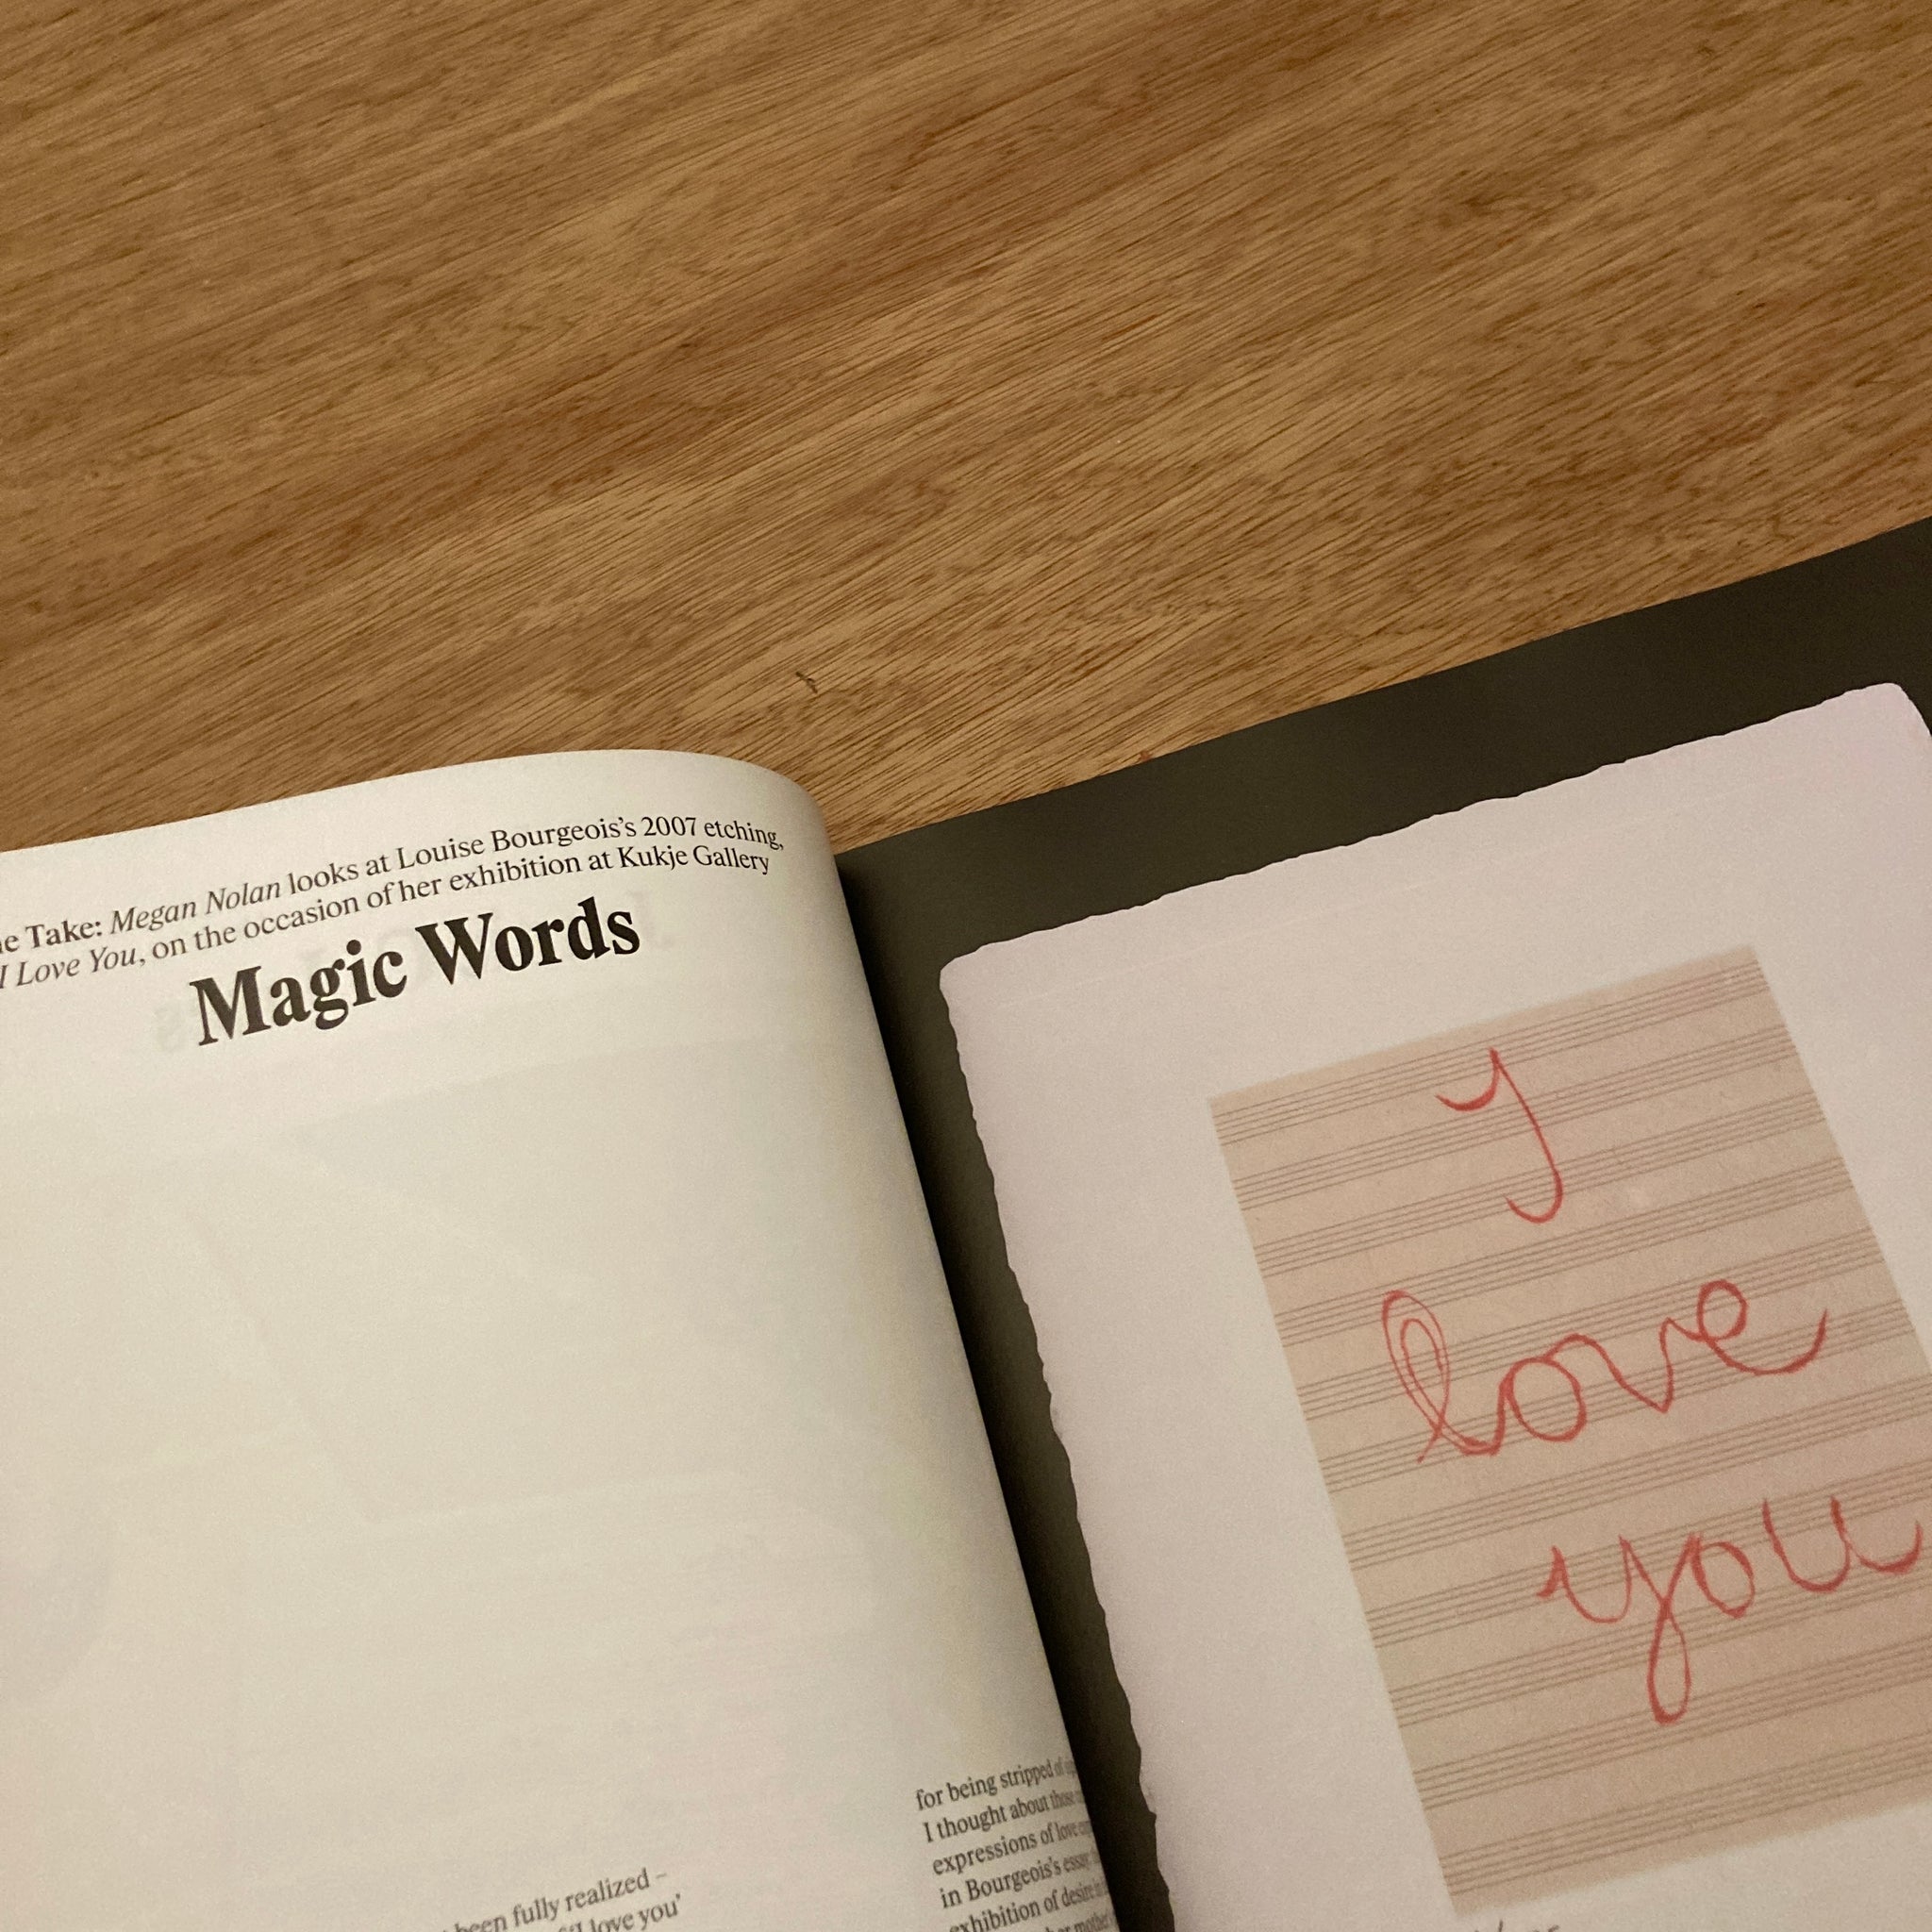 Take: Megan Nolan looks at Louise Bourgeois's 2007 etching,
I Love You, on the occasion of her exhibition at Kukje Gallery
Magic Words
been fully realized –
love you'
for being stripped of
I thought about those
expressions of love
in Bourgeois's essay
exhibition of desire
mother
I
love
you